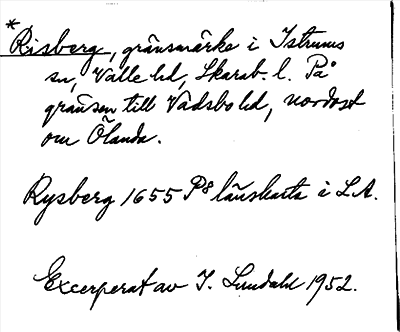 *Risberg, gränsmärke i Istrums
sn, Valle hd, Skarab. l. På
gränsen till Vadsbo hd, nordost
om Ölanda.
Rysberg 1655 P8 länskarta i L.A.
Excerperat av I. Lundahl 1952.